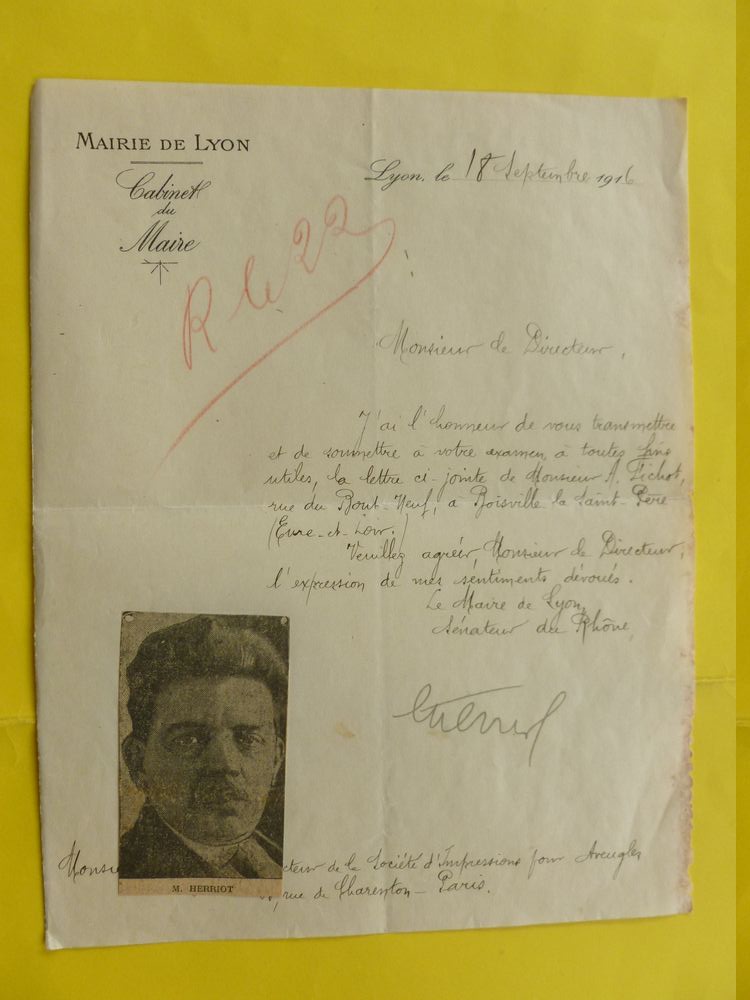 MAIRIE DE LYON
Cabinet
du
Maire
Lyon, le 18 Septembre 1916
R le 22
Monsieur le Directeur,
J'ai l'honneur de vous transmettre
et de soumettre à votre examen, à toutes fins
utiles, la lettre ci-jointe de Monsieur A. Pichot,
rue du Bout-Neuf, à Boisville la Saint-Père
(Eure-et-Loir.)
Veuillez agréer, Monsieur le Directeur,
l'expression de mes sentiments dévoués.
Le Maire de Lyon,
Sénateur du Rhône,
Herriot
Monsi cteur de la Société d'Impressions pour Aveugles
, rue de Charenton - Paris.
M. HERRIOT